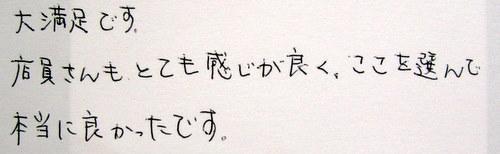 大満足です。
店員さんも、とても感じが良く、ここを選んで
本当に良かったです。